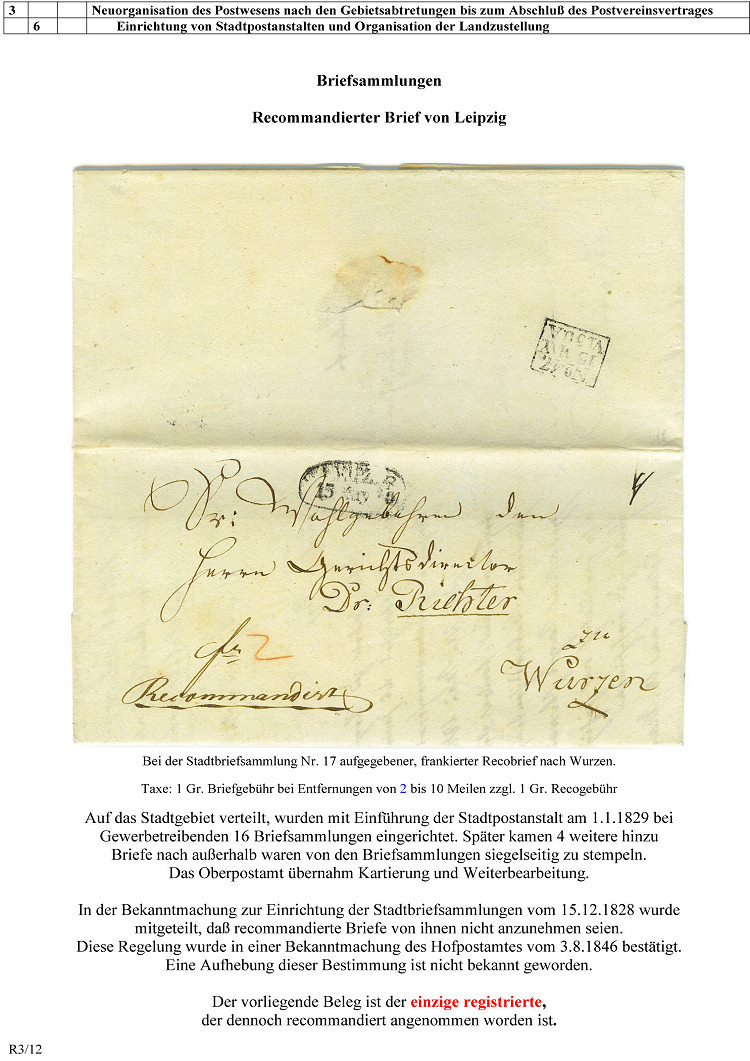 3 Neuorganisation des Postwesens nach den Gebietsabtretungen bis zum Abschluß des Postvereinsvertrages
6 Einrichtung von Stadtpostanstalten und Organisation der Landzustellung
Briefsammlungen
Recommandierter Brief von Leipzig
LEIPZ.
15 May
Sr: Wohlgebohren den
Herrn Gerichtsdirector
Dr: Richter
fr 2
zu
Recommandirt
Wurzen
Bei der Stadtbriefsammlung Nr. 17 aufgegebener, frankierter Recobrief nach Wurzen.
Taxe: 1 Gr. Briefgebühr bei Entfernungen von 2 bis 10 Meilen zzgl. 1 Gr. Recogebühr
Auf das Stadtgebiet verteilt, wurden mit Einführung der Stadtpostanstalt am 1.1.1829 bei
Gewerbetreibenden 16 Briefsammlungen eingerichtet. Später kamen 4 weitere hinzu
Briefe nach außerhalb waren von den Briefsammlungen siegelseitig zu stempeln.
Das Oberpostamt übernahm Kartierung und Weiterbearbeitung.
In der Bekanntmachung zur Einrichtung der Stadtbriefsammlungen vom 15.12.1828 wurde
mitgeteilt, daß recommandierte Briefe von ihnen nicht anzunehmen seien.
Diese Regelung wurde in einer Bekanntmachung des Hofpostamtes vom 3.8.1846 bestätigt.
Eine Aufhebung dieser Bestimmung ist nicht bekannt geworden.
Der vorliegende Beleg ist der einzige registrierte,
der dennoch recommandiert angenommen worden ist.
R3/12